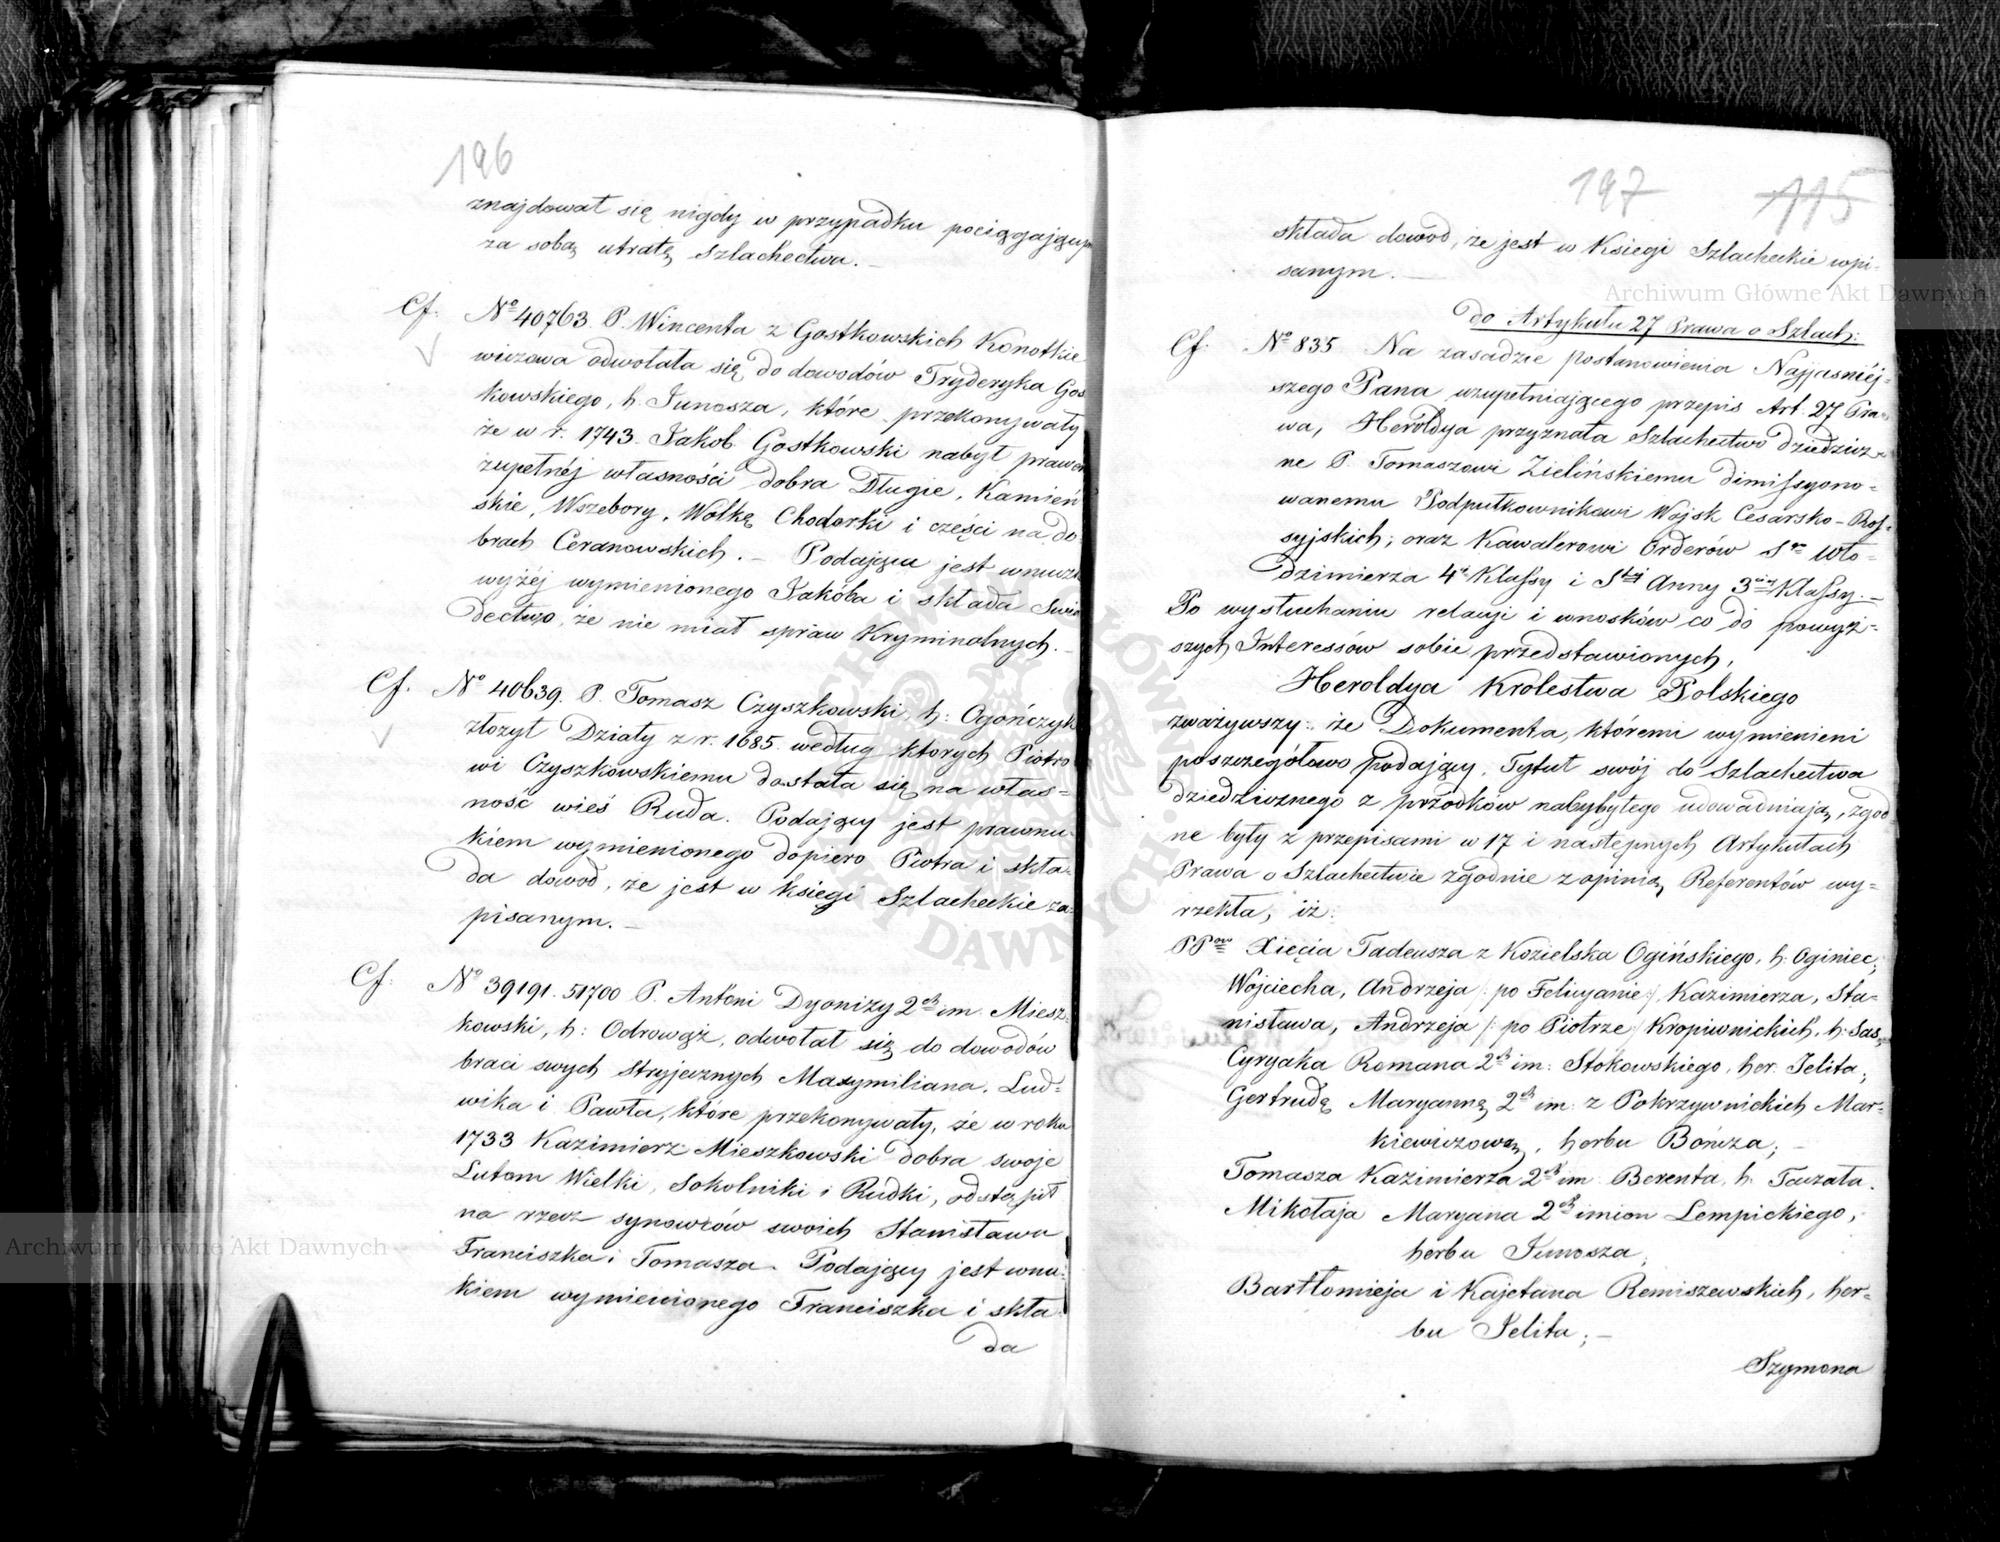 196
znajdował się nigdy w przypadku pociągającym
za sobą utratę szlachectwa. —
Cf. Nº 40763. P. Wincenta z Gostkowskich Konotkie
wiczowa odwołała się do dowodów Fryderyka Gos
kowskiego, h. Junosza, które przekonywały
że w r. 1743. Jakób Gostkowski nabył prawem
zupełnéj własności dobra Długie, Kamień
skie, Wszebory, Wólkę Chodorki i części na do
brach Ceranowskich. — Podająca jest wnuczką
wyżéj wymienionego Jakóba i składa Świa
dectwo, że nie miał spraw Kryminalnych. —
Cf. Nº 40639. P. Tomasz Czyszkowski, h: Ogończyk
złożył Działy z r. 1685. według których Piotro
wi Czyszkowskiemu dostała się na włas=
ność wieś Ruda. Podający jest prawnu
kiem wymienionego dopiero Piotra i skła=
da dowód, że jest w księgi Szlacheckie za
pisanym. —
Cf. Nº 39191. 51700 P. Antoni Dyonizy 2ch im. Miesz=
kowski, h: Odrowąż, odwołał się do dowodów
braci swych stryjecznych Maxymiliana, Lud=
wika i Pawła, które przekonywały, że w roku
1733 Kazimierz Mieszkowski dobra swoje
Lutom Wielki, Sokolniki i Rudki, odstąpił
na rzecz synowców swoich Stanisława
Franciszka i Tomasza. Podający jest wnu=
kiem wymienionego Franciszka i skła
da
197 115
składa dowód, że jest w Księgi Szlacheckie wpi=
sanym. —
do Artykułu 27 Prawa o Szlach:
Cf. Nº 835 Na zasadzie postanowienia Najjaśniéj=
szego Pana uzupełniającego przepis Art. 27 Pra=
wa, Heroldya przyznała Szlachectwo dziedzicz=
ne P. Tomaszowi Zielińskiemu dimissyono=
wanemu Podpułkownikowi Wojsk Cesarsko-Ros=
syjskich; oraz Kawalerowi Orderów Sgo Wło=
dzimierza 4éj Klassy i Stéj Anny 3ciéj Klassy. —
Po wysłuchaniu relacyi i wnosków co do powyż=
szych Interessów sobie przedstawionych,
Heroldya Królestwa Polskiego
zważywszy: że Dokumenta, któremi wymienieni
poszczegółowo podający, Tytuł swój do Szlachectwa
dziedzicznego z przodków nabybytego udowadniają, zgod
ne były z przepisami w 17 i następnych Artykułach
Prawa o Szlachectwie zgodnie z opinią Referentów wy=
rzekła, iż:
PPów Xięcia Tadeusza z Kozielska Ogińskiego, h: Oginiec;
Wojciecha, Andrzeja /: po Felicyanie :/, Kazimierza, Sta=
nisława, Andrzeja /: po Piotrze :/ Kropiwnickich, h: Sas;
Cyryaka Romana 2ch im: Stokowskiego, her. Jelita;
Gertrudę Maryannę 2ch im: z Pokrzywnickich Mar=
kiewiczową, herbu Bończa; —
Tomasza Kazimierza 2ch im Berenta, h. Taczała.
Mikołaja Maryana 2ch imion Lempickiego,
herbu Junosza;
Bartłomieja i Kajetana Remiszewskich, her=
bu Jelita; —
Szymona
Archiwum Główne Akt Dawnych
Archiwum Główne Akt Dawnych